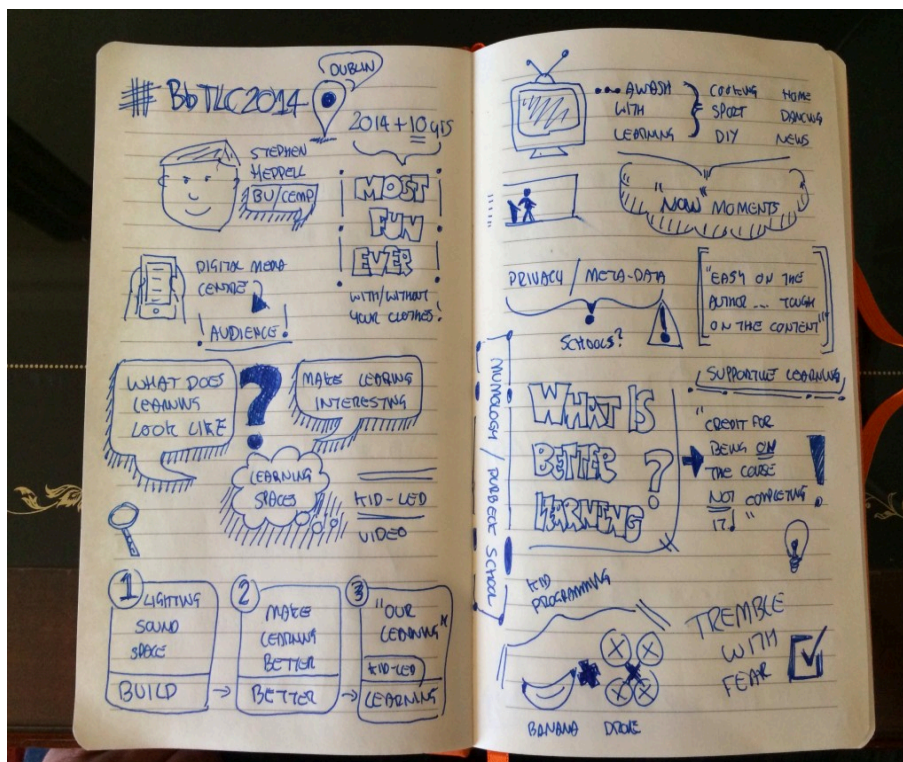 # BbTLC2014
DUBLIN
2014 + 10 yrs
STEPHEN
HEPPELL
BU/CEMP
MOST
FUN
EVER
WITH/WITHOUT
YOUR CLOTHES!
DIGITAL MEDIA
CENTRE
! AUDIENCE!
WHAT DOES
LEARNING
LOOK LIKE
?
MAKE LEARNING
INTERESTING
LEARNING
SPACES
KID-LED
VIDEO
1
LIGHTING
SOUND
SPACE
BUILD
2
MAKE
LEARNING
BETTER
BETTER
3
"OUR
LEARNING"
KID-LED
LEARNING
... AWASH
WITH
LEARNING
COOKING HOME
SPORT DANCING
DIY NEWS
"NOW" MOMENTS
PRIVACY / META-DATA
SCHOOLS?
!
"EASY ON THE
AUTHOR ... TOUGH
ON THE CONTENT"
/ PURBECK SCHOOL
WHAT IS
BETTER
LEARNING?
SUPPORTIVE LEARNING
"CREDIT FOR
BEING ON
THE COURSE
NOT COMPLETING
IT!"
!
KID
PROGRAMMING
BANANA DRONE
TREMBLE
WITH
FEAR